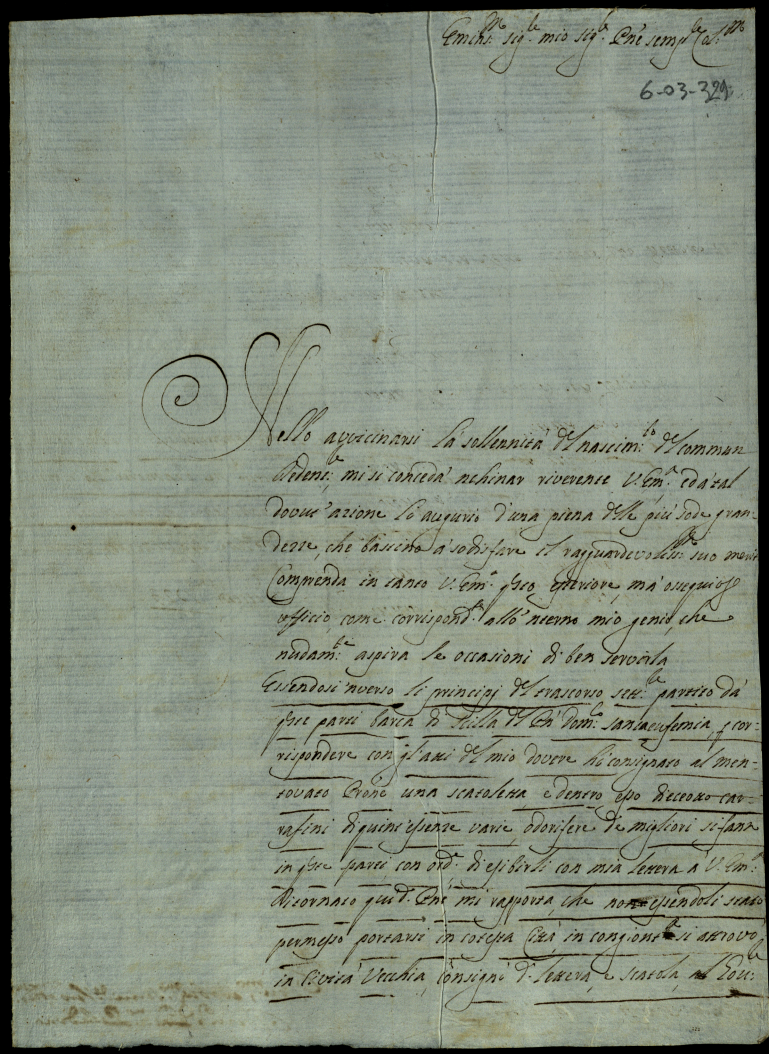 Emin:mo Sig:re mio Sig:re P'ne semp:re Col:mo
6-03-329
Nello avvicinarsi la sollennità del nascim:to del commun
Redent:re, mi si conceda nchinar riverente V. Em:a e da tal
dovut'azione lo augurio d'una piena delle più sode gran-
dezze, che bastino a sodisfare el ragguardevoliss:mo suo merito
Comprenda in tanto V. Em:a q'sto esteriore, ma ossequioso
officio, come corrispond:te allo 'nterno mio genio, che
nudam:te aspira le occasioni di ben servirla
Essendosi nverso li principj del trascorso sett:re partito da
q'ste parti barca di Scilla del P'ne Dom:co Santaeufemia, p cor-
rispondere con gl'atti del mio dovere hò consignato al men-
tovato Pròne una scatoletta e dentro esso dieceotto car-
rafini di quint'essenze varie, odorifere de migliori si fann
in q'ste parti con ord:e di esibirli con mia lettera a V. Em:a
Ritornato qui d: P'ne mi rapporta, che non essendoli stato
permesso portarsi in cotesta Città in congiont:ra si attrovò
in Civita Vecchia, consignò d: lettera, e scatola, al